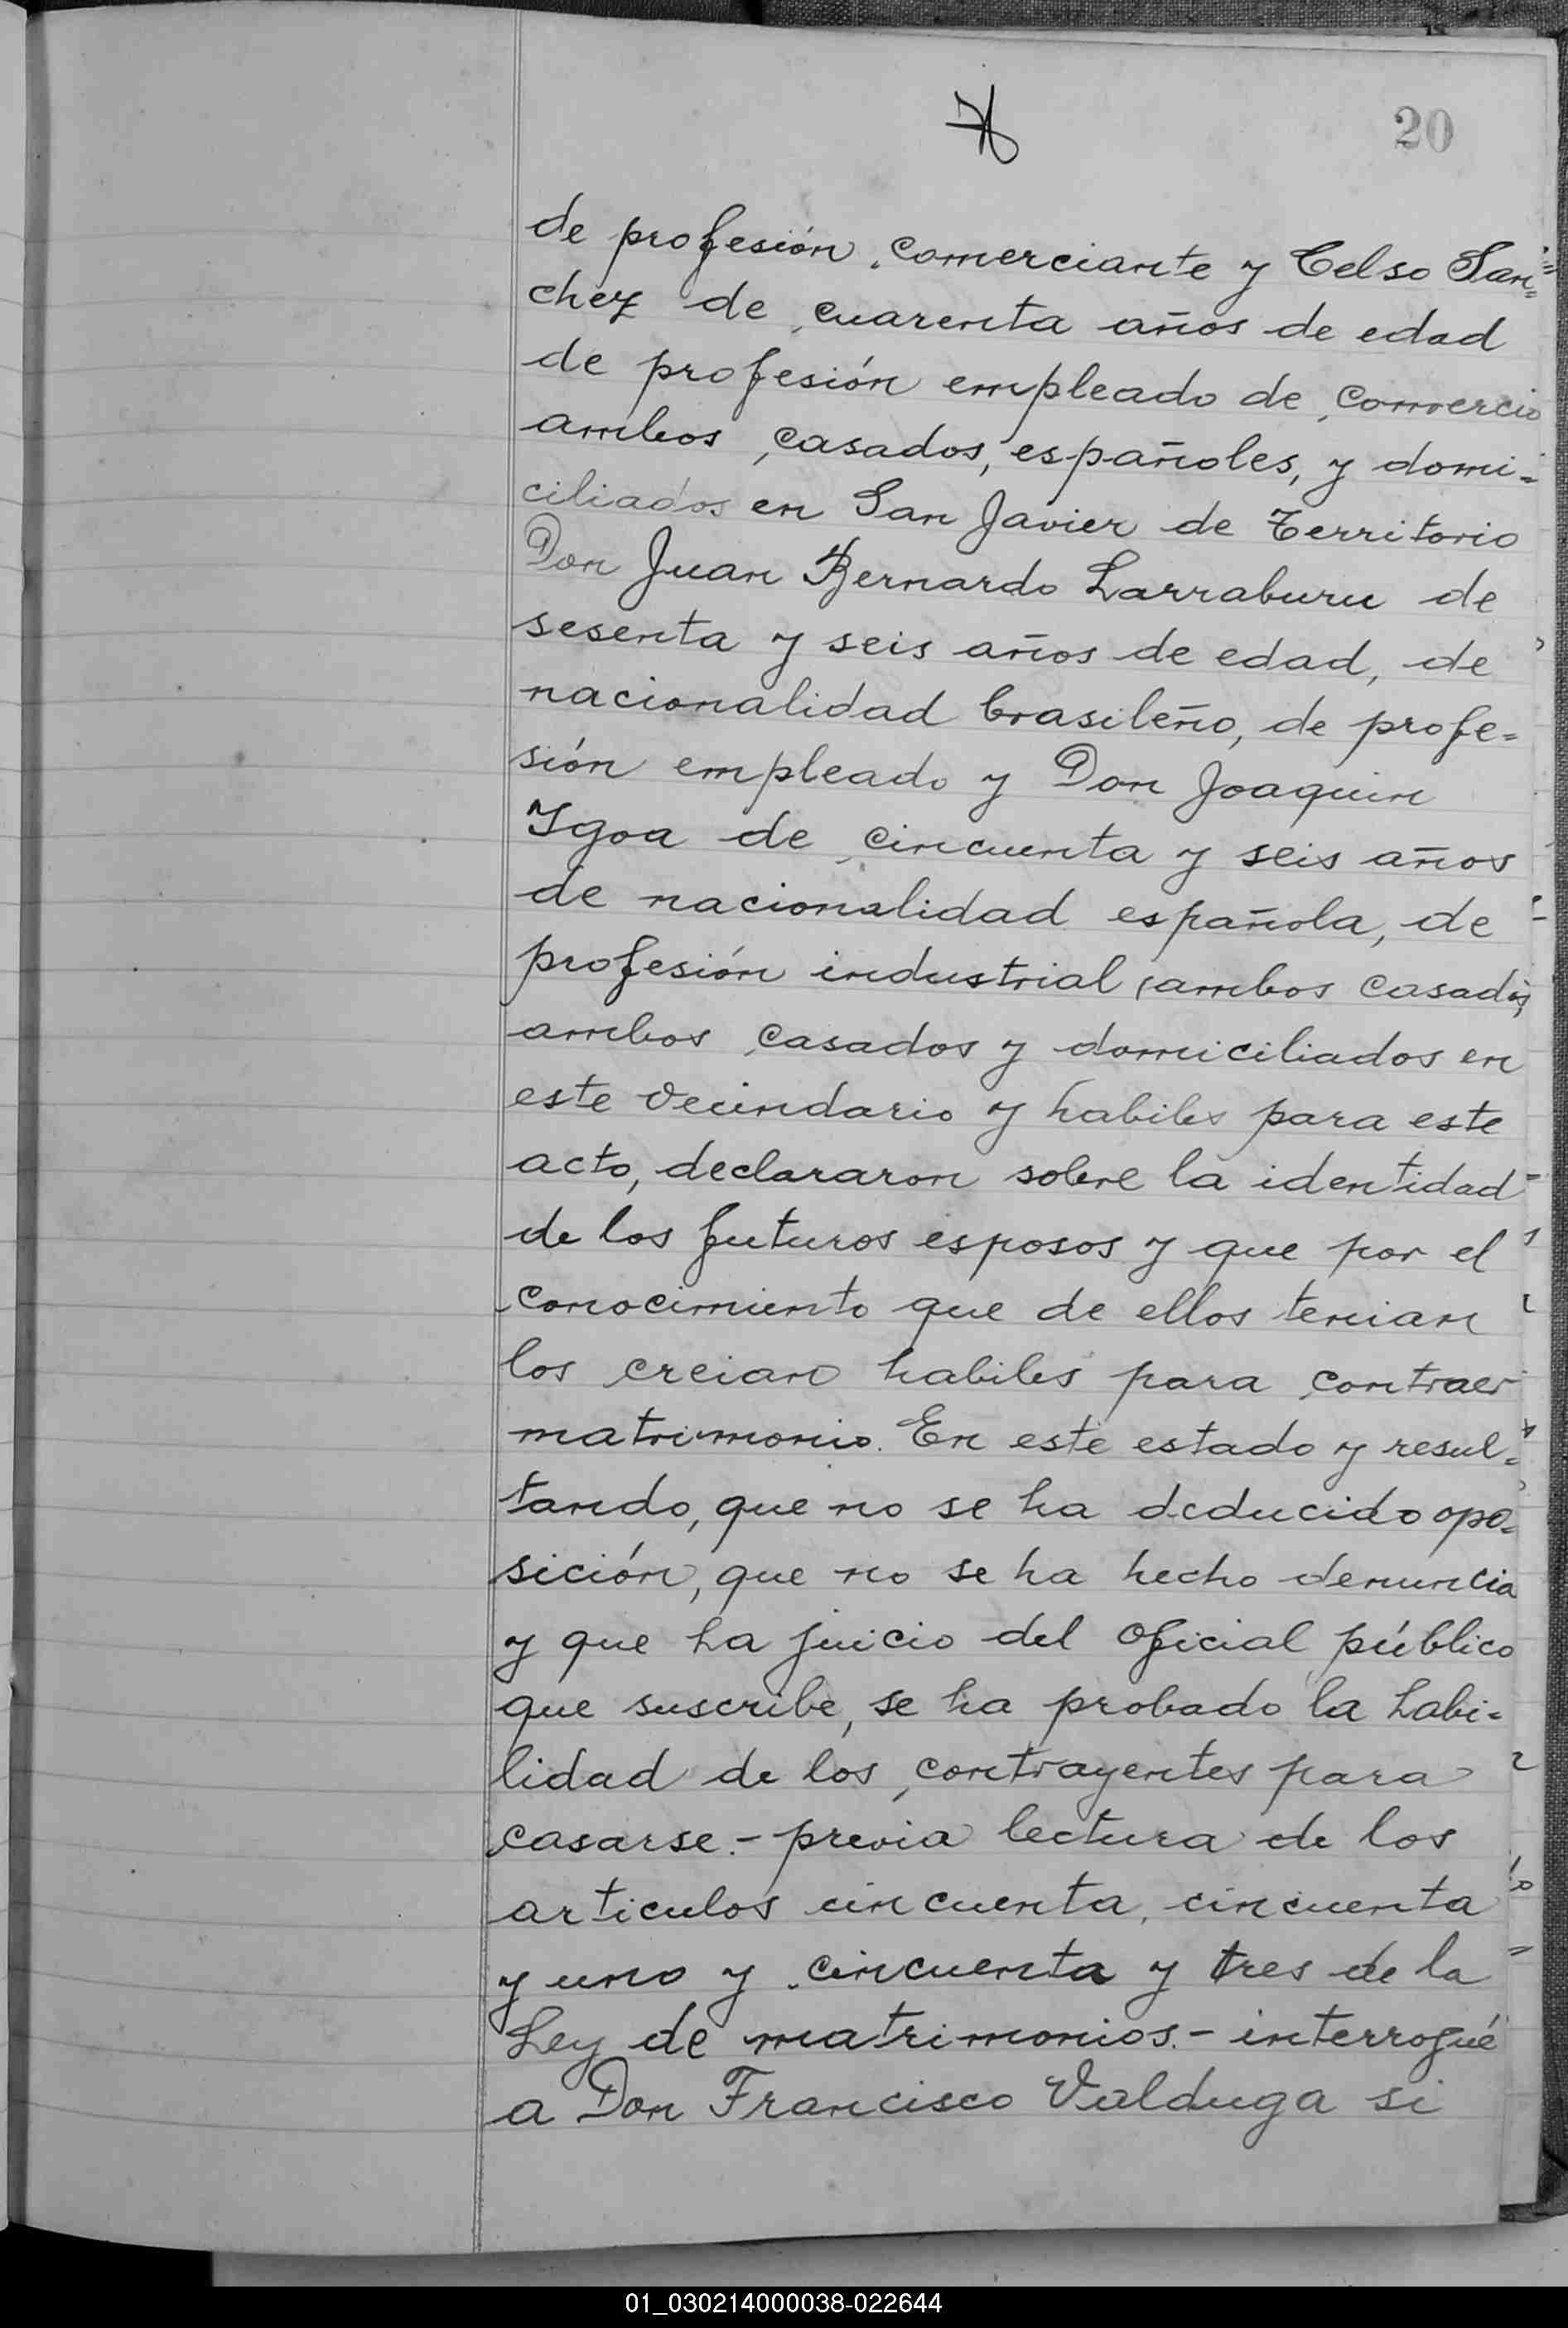 20
de profesión comerciante y Celso San=
chez de cuarenta años de edad
de profesión empleado de comercio
ambos casados, españoles, y domi=
ciliados en San Javier de Territorio
Don Juan Bernardo Larraburu de
sesenta y seis años de edad, de
nacionalidad brasileño, de profe=
sión empleado y Don Joaquin
Ygoa de cincuenta y seis años
de nacionalidad española, de
profesión industrial, ambos casados,
ambos casados y domiciliados en
este vecindario y habiles para este
acto, declararon sobre la identidad
de los futuros esposos y que por el
conocimiento que de ellos tenian
los creian habiles para contraer
matrimonio. En este estado y resul=
tando, que no se ha deducido opo=
sición, que no se ha hecho denuncia
y que ha juicio del oficial público
que suscribe, se ha probado la habi=
lidad de los contrayentes para
casarse.- previa lectura de los
articulos cincuenta, cincuenta
y uno y cincuenta y tres de la
Ley de matrimonios.- interrogué
a Don Francisco Valduga si
01_030214000038-022644